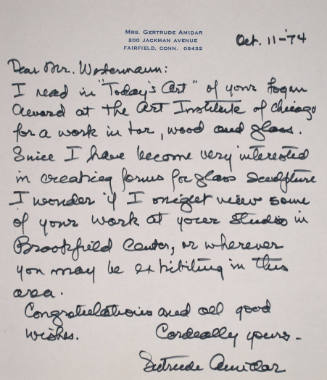 MRS. GERTRUDE AMIDAR
200 JACKMAN AVENUE
FAIRFIELD, CONN. 06432
Oct. 11-'74
Dear Mr. Westermann:
I read in "Today's Art" of your Logan
Award at the Art Institute of Chicago
for a work in tar, wood and glass.
Since I have become very interested
in creating forms for glass sculpture
I wonder if I might view some
of your work at your studio in
Brookfield Center, or wherever
you may be exhibiting in this
area.
Congratulations and all good
wishes. Cordially yours -
Gertrude Amidar